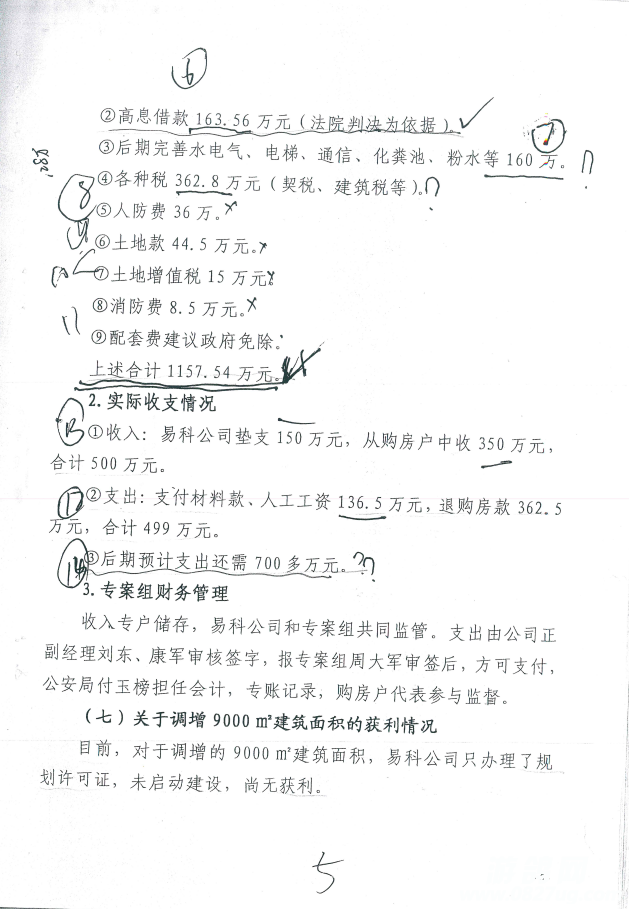 6
②高息借款 163.56 万元（法院判决为依据）。
7
③后期完善水电气、电梯、通信、化粪池、粉水等 160 万。
8
④各种税 362.8 万元（契税、建筑税等）。?
⑤人防费 36 万。
⑥土地款 44.5 万元。
⑦土地增值税 15 万元。
⑧消防费 8.5 万元。
11
⑨配套费建议政府免除。
上述合计 1157.54 万元。
2.实际收支情况
①收入：易科公司垫支 150 万元，从购房户中收 350 万元，
合计 500 万元。
②支出：支付材料款、人工工资 136.5 万元，退购房款 362.5
万元，合计 499 万元。
14
③后期预计支出还需 700 多万元。??
3.专案组财务管理
收入专户储存，易科公司和专案组共同监管。支出由公司正
副经理刘东、康军审核签字，报专案组周大军审签后，方可支付，
公安局付玉榜担任会计，专账记录，购房户代表参与监督。
（七）关于调增 9000 ㎡建筑面积的获利情况
目前，对于调增的 9000 ㎡建筑面积，易科公司只办理了规
划许可证，未启动建设，尚无获利。
5